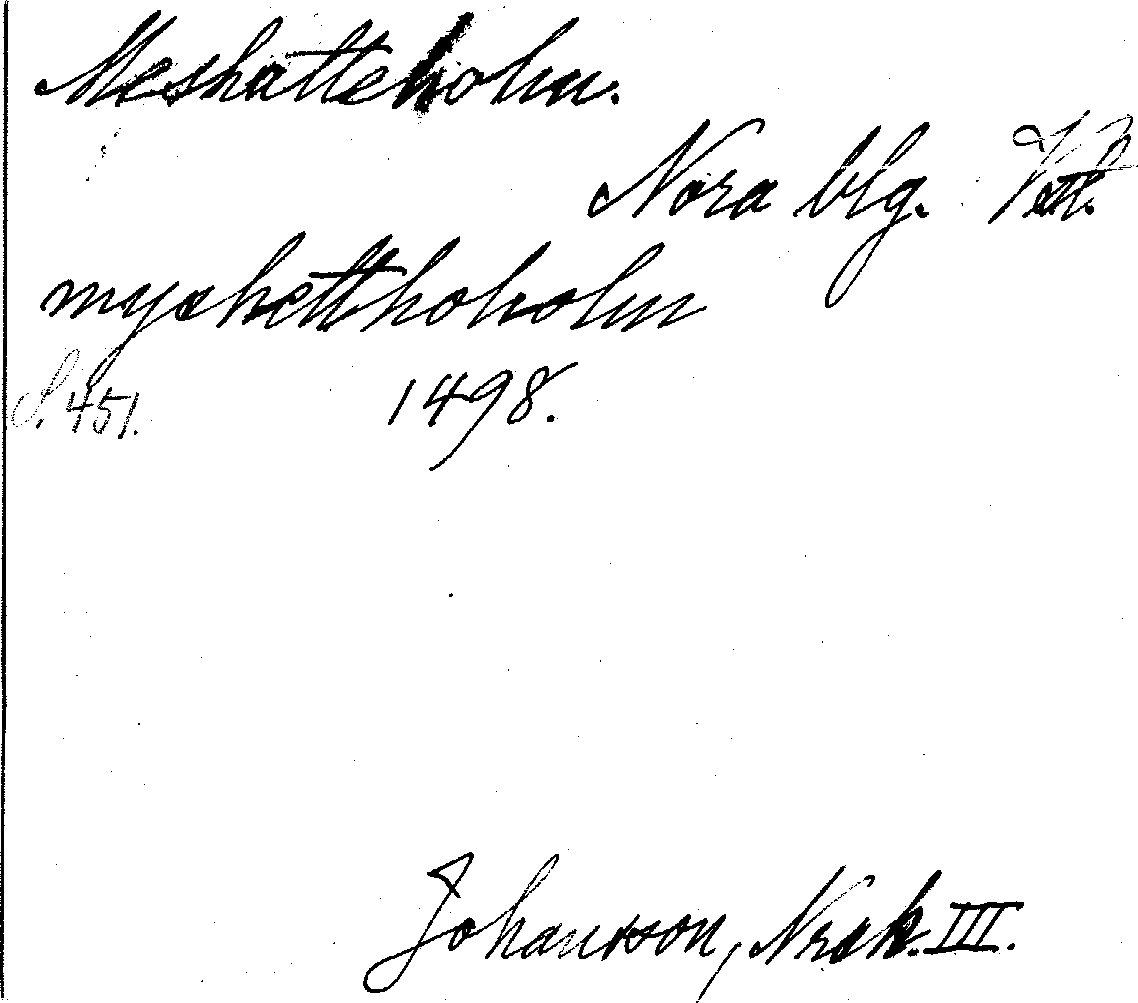 Meshatteholm.
Nora blg. Vstl.
myshetthoholm
S. 451. 1498.
Johansson, Norask. III.